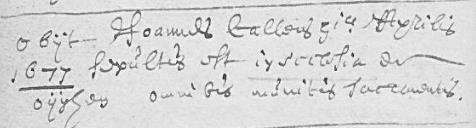 obijt Joannes Callens 31a Aprilis
1677 sepultus est in ecclesia de
omnibus munitus sacramentis.